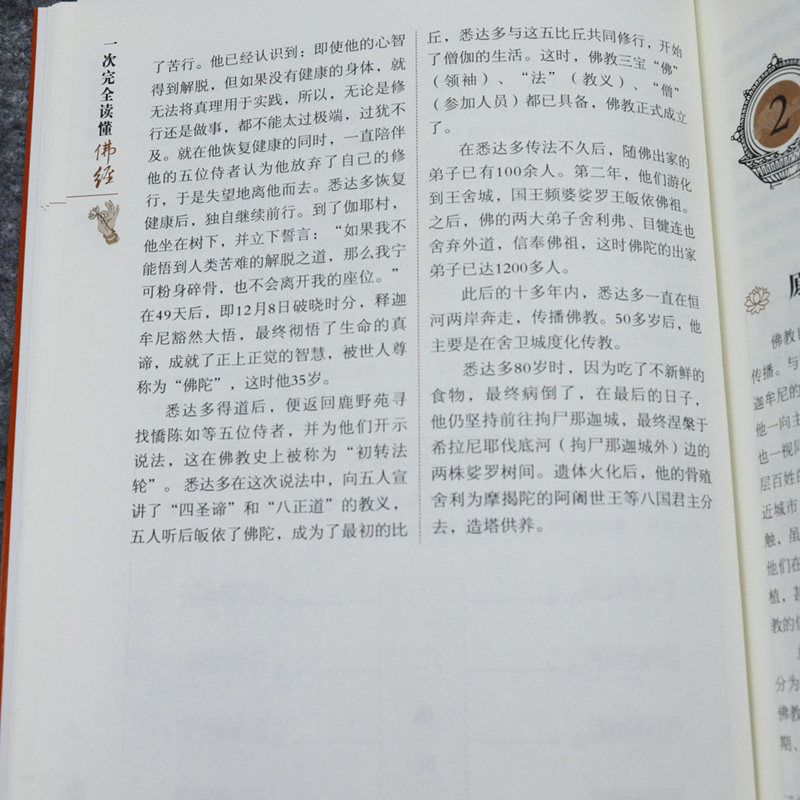 一次完全读懂
佛经
了苦行。他已经认识到：即使他的心智
得到解脱，但如果没有健康的身体，就
无法将真理用于实践，所以，无论是修
行还是做事，都不能太过极端，过犹不
及。就在他恢复健康的同时，一直陪伴
他的五位侍者认为他放弃了自己的修
行，于是失望地离他而去。悉达多恢复
健康后，独自继续前行。到了伽耶村，
他坐在树下，并立下誓言：“如果我不
能悟到人类苦难的解脱之道，那么我宁
可粉身碎骨，也不会离开我的座位。”
在49天后，即12月8日破晓时分，释迦
牟尼豁然大悟，最终彻悟了生命的真
谛，成就了正上正觉的智慧，被世人尊
称为“佛陀”，这时他35岁。
悉达多得道后，便返回鹿野苑寻
找憍陈如等五位侍者，并为他们开示
说法，这在佛教史上被称为“初转法
轮”。悉达多在这次说法中，向五人宣
讲了“四圣谛”和“八正道”的教义，
五人听后皈依了佛陀，成为了最初的比
丘，悉达多与这五比丘共同修行，开始
了僧伽的生活。这时，佛教三宝“佛”
（领袖）、“法”（教义）、“僧”
（参加人员）都已具备，佛教正式成立
了。
在悉达多传法不久后，随佛出家的
弟子已有100余人。第二年，他们游化
到王舍城，国王频婆娑罗王皈依佛祖。
之后，佛的两大弟子舍利弗、目犍连也
舍弃外道，信奉佛祖，这时佛陀的出家
弟子已达1200多人。
此后的十多年内，悉达多一直在恒
河两岸奔走，传播佛教。50多岁后，他
主要是在舍卫城度化传教。
悉达多80岁时，因为吃了不新鲜的
食物，最终病倒了，在最后的日子，
他仍坚持前往拘尸那迦城，最终涅槃于
希拉尼耶伐底河（拘尸那迦城外）边的
两株娑罗树间。遗体火化后，他的骨殖
舍利为摩揭陀的阿阇世王等八国君主分
去，造塔供养。
2
佛教
传播。与
迦牟尼的
他一向主
也一视同
层百姓的
近城市
触，虽
他们在
植，甚
教的信
分为
佛教
期、